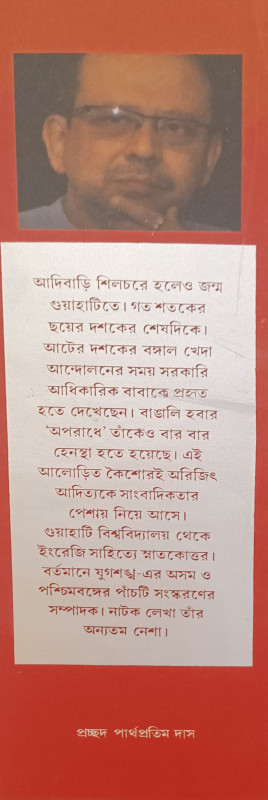 আদিবাড়ি শিলচরে হলেও জন্ম
গুয়াহাটিতে। গত শতকের
ছয়ের দশকের শেষদিকে।
আটের দশকের বঙ্গাল খেদা
আন্দোলনের সময় সরকারি
আধিকারিক বাবাকে প্রহৃত
হতে দেখেছেন। বাঙালি হবার
‘অপরাধে’ তাঁকেও বার বার
হেনস্থা হতে হয়েছে। এই
আলোড়িত কৈশোরই অরিজিৎ
আদিত্যকে সাংবাদিকতার
পেশায় নিয়ে আসে।
গুয়াহাটি বিশ্ববিদ্যালয় থেকে
ইংরেজি সাহিত্যে স্নাতকোত্তর।
বর্তমানে যুগশঙ্খ-এর অসম ও
পশ্চিমবঙ্গের পাঁচটি সংস্করণের
সম্পাদক। নাটক লেখা তাঁর
অন্যতম নেশা।
প্রচ্ছদ পার্থপ্রতিম দাস